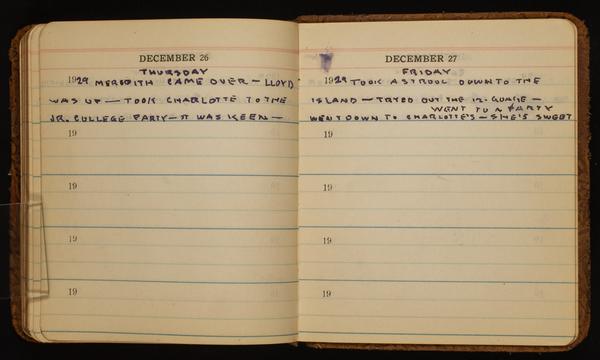 DECEMBER 26
THURSDAY
1929 MEREDITH CAME OVER — LLOYD
WAS UP — TOOK CHARLOTTE TO THE
JR. COLLEGE PARTY — IT WAS KEEN —
19
19
19
19
DECEMBER 27
FRIDAY
1929 TOOK A STROOL DOWN TO THE
ISLAND — TRYED OUT THE 12-GUAGE —
WENT TO A PARTY
WENT DOWN TO CHARLOTTE'S — SHE'S SWEET
19
19
19
19